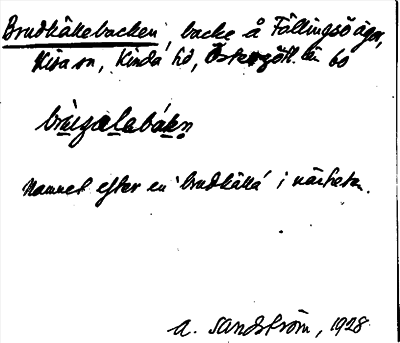 Brudkällebacken, backe å Fållingsö ägor,
Kisa sn, Kinda hd, Östergötl. län 60
Namnet efter en 'brudkälla' i närheten.
A. Sandström, 1928